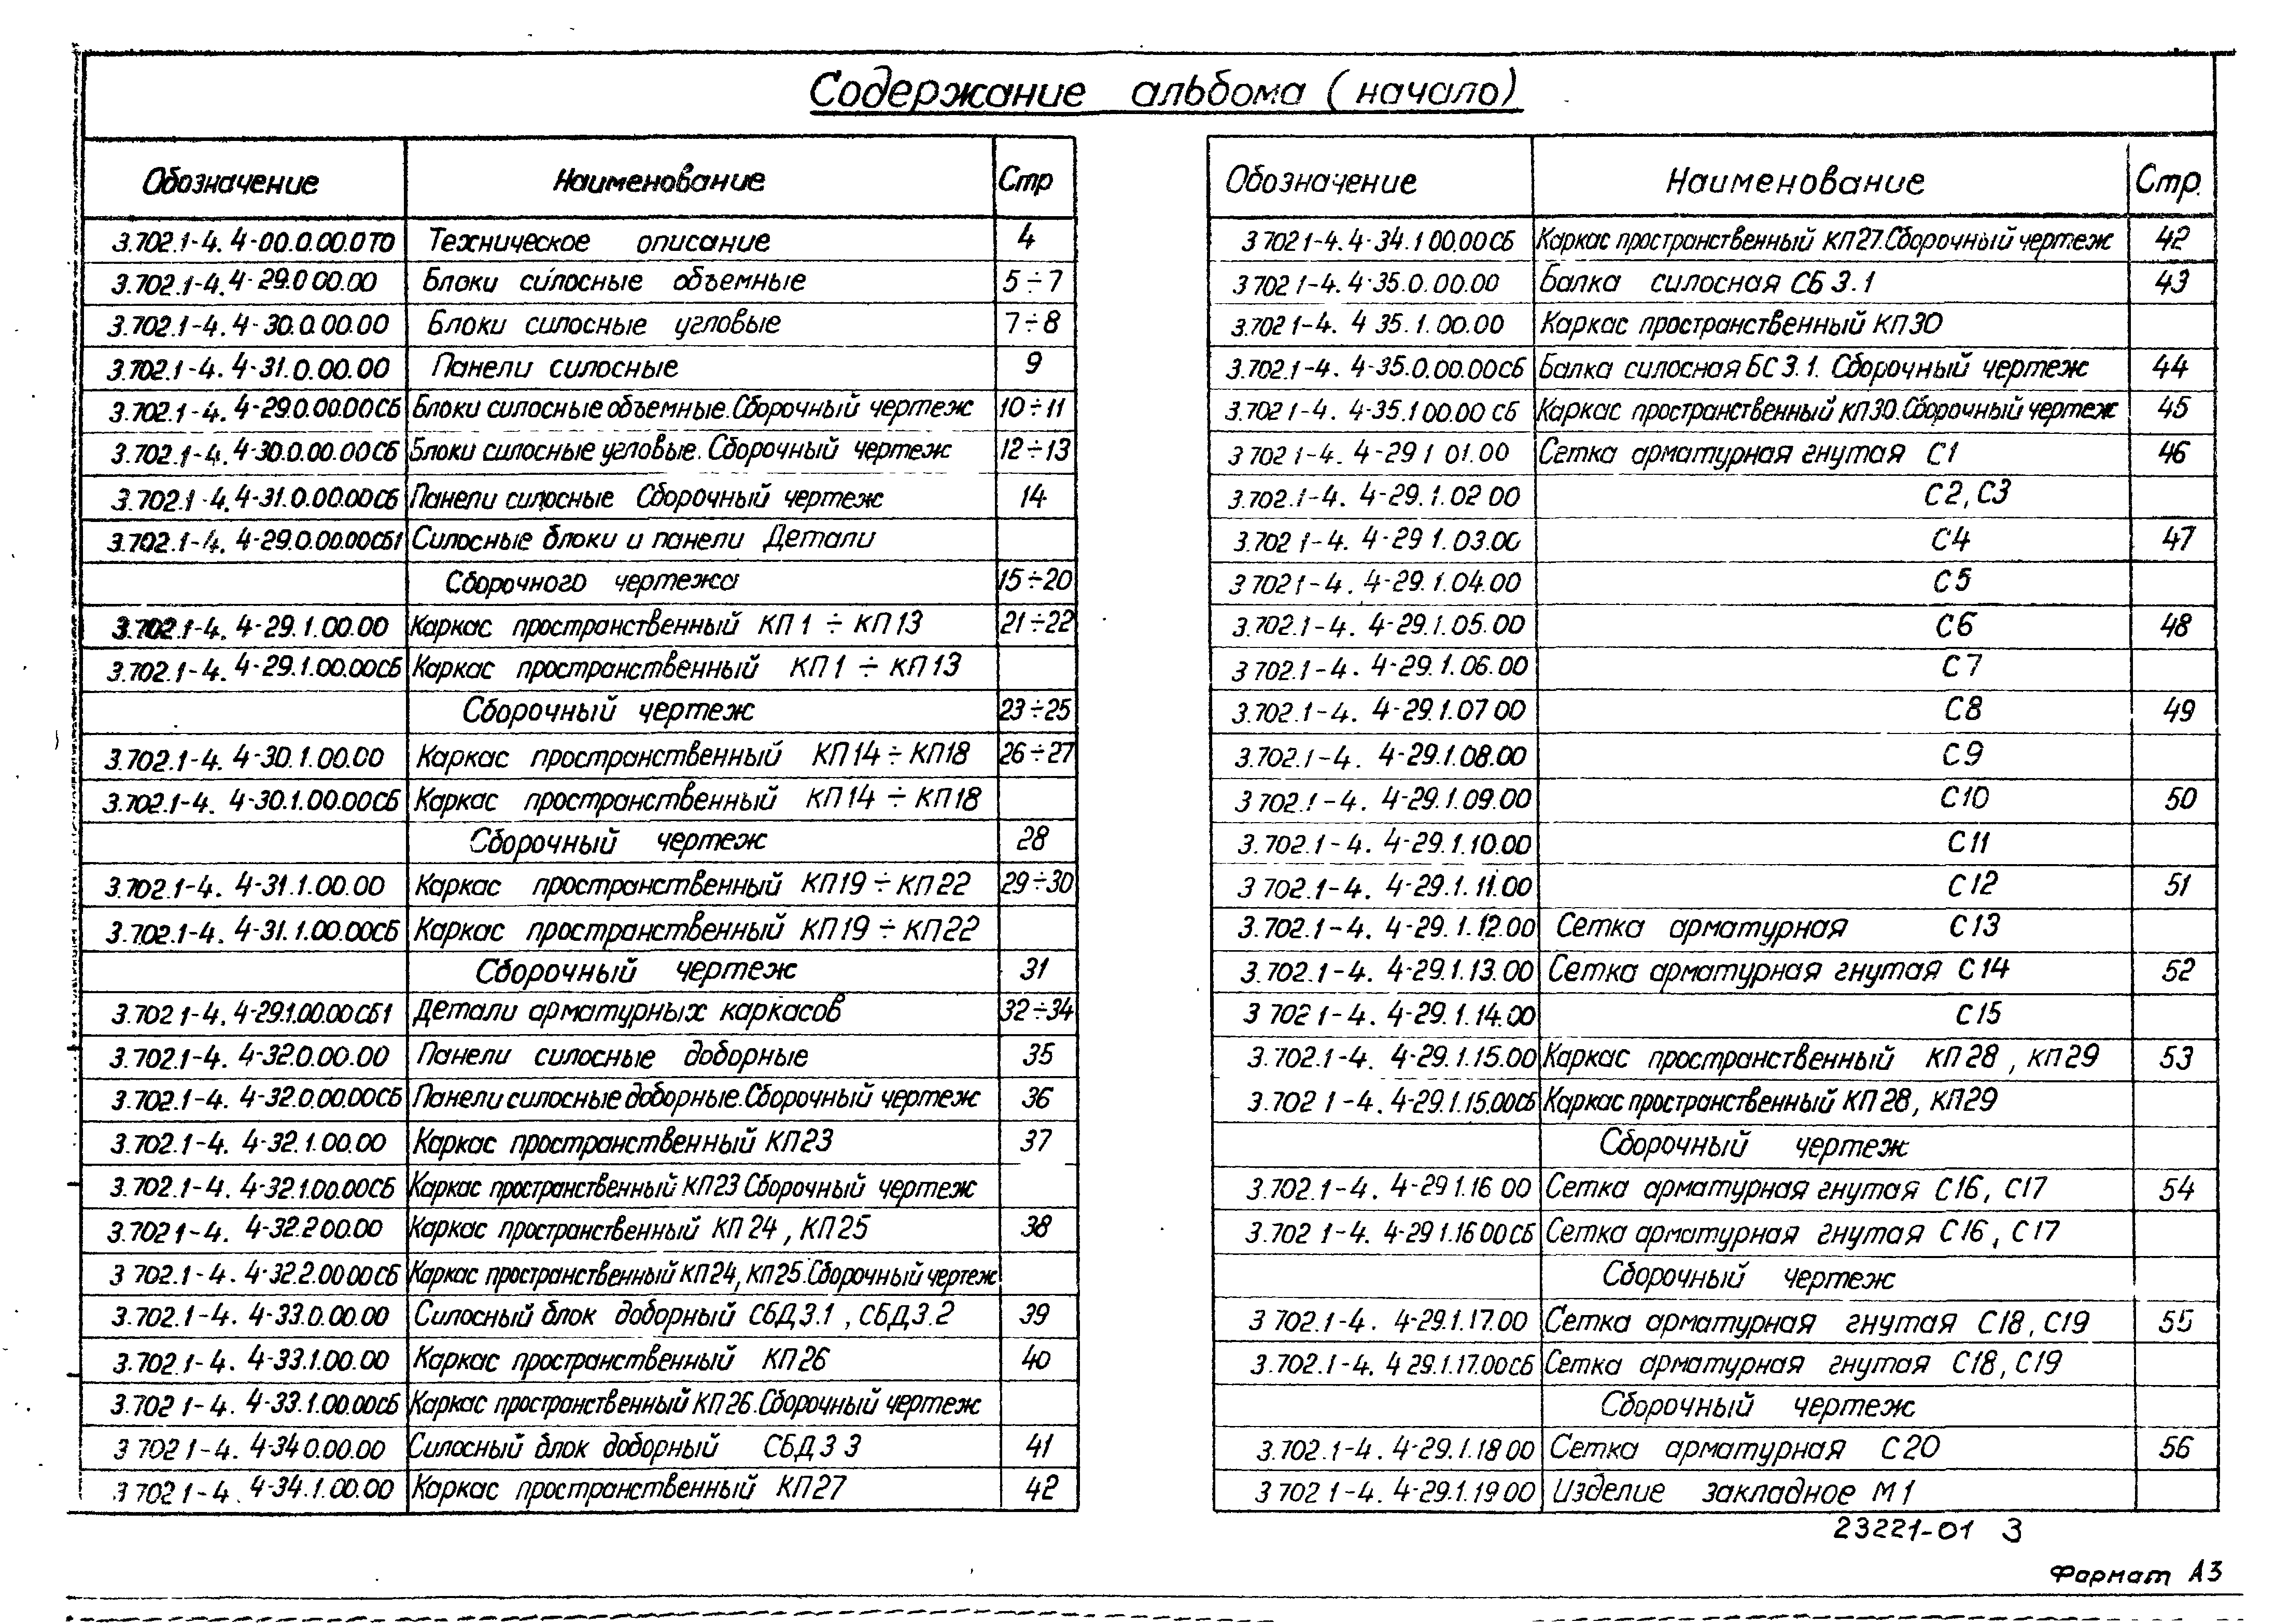 Содержание альбома (начало)
Обозначение Наименование Стр
3.702.1-4. 4-00.0.00.0ТО Техническое описание 4
3.702.1-4. 4-29.0 00.00 Блоки силосные объемные 5÷7
3.702.1-4. 4-30.0.00.00 Блоки силосные угловые 7÷8
3.702.1-4. 4-31.0.00.00 Панели силосные 9
3.702.1-4. 4-29.0.00.00СБ Блоки силосные объемные. Сборочный чертеж 10÷11
3.702.1-4. 4-30.0.00.00СБ Блоки силосные угловые. Сборочный чертеж 12÷13
3.702.1-4. 4-31.0.00.00СБ Панели силосные Сборочный чертеж 14
3.702.1-4. 4-29.0.00.00СБ1 Силосные блоки и панели Детали
Сборочного чертежа 15÷20
3.702.1-4. 4-29.1.00.00 Каркас пространственный КП1 ÷ КП13 21÷22
3.702.1-4. 4-29.1.00.00СБ Каркас пространственный КП1 ÷ КП13
Сборочный чертеж 23÷25
3.702.1-4. 4-30.1.00.00 Каркас пространственный КП14 ÷ КП18 26÷27
3.702.1-4. 4-30.1.00.00СБ Каркас пространственный КП14 ÷ КП18
Сборочный чертеж 28
3.702.1-4. 4-31.1.00.00 Каркас пространственный КП19 ÷ КП22 29÷30
3.702.1-4. 4-31.1.00.00СБ Каркас пространственный КП19 ÷ КП22
Сборочный чертеж 31
3.702 1-4. 4-29.1.00.00СБ1 Детали арматурных каркасов 32÷34
3.702.1-4. 4-32.0.00.00 Панели силосные доборные 35
3.702.1-4. 4-32.0.00.00СБ Панели силосные доборные. Сборочный чертеж 36
3.702.1-4. 4-32.1.00.00 Каркас пространственный КП23 37
3.702.1-4. 4-32.1.00.00СБ Каркас пространственный КП23 Сборочный чертеж
3.702 1-4. 4-32.2 00.00 Каркас пространственный КП24, КП25 38
3 702.1-4. 4-32.2.00 00СБ Каркас пространственный КП24, КП25. Сборочный чертеж
3.702.1-4. 4-33.0.00.00 Силосный блок доборный СБД3.1, СБД3.2 39
3.702.1-4. 4-33.1.00.00 Каркас пространственный КП26 40
3.702 1-4. 4-33.1.00.00СБ Каркас пространственный КП26. Сборочный чертеж
3 702 1-4. 4-34 0.00.00 Силосный блок доборный СБД 3 3 41
3 702 1-4. 4-34.1.00.00 Каркас пространственный КП27 42
Обозначение Наименование Стр.
3 702 1-4. 4-34.1 00.00СБ Каркас пространственный КП27. Сборочный чертеж 42
3 702 1-4. 4-35.0.00.00 Балка силосная СБ 3.1 43
3.702 1-4. 4 35.1.00.00 Каркас пространственный КП30
3.702.1-4. 4-35.0.00.00СБ Балка силосная БС 3.1. Сборочный чертеж 44
3.702 1-4. 4-35.1 00.00 СБ Каркас пространственный КП30. Сборочный чертеж 45
3 702 1-4. 4-29 1 01.00 Сетка арматурная гнутая С1 46
3.702.1-4. 4-29.1.02 00 С2, С3
3.702 1-4. 4-29 1.03.00 С4 47
3 702 1-4. 4-29.1.04.00 С5
3.702.1-4. 4-29.1.05.00 С6 48
3 702.1-4. 4-29.1.06.00 С7
3.702.1-4. 4-29.1.07 00 С8 49
3.702.1-4. 4-29.1.08.00 С9
3 702.1-4. 4-29.1.09.00 С10 50
3.702.1-4. 4-29.1.10.00 С11
3 702.1-4. 4-29.1.11.00 С12 51
3.702.1-4. 4-29.1.12.00 Сетка арматурная С13
3.702.1-4. 4-29.1.13.00 Сетка арматурная гнутая С14 52
3 702 1-4. 4-29.1.14.00 С15
3.702.1-4. 4-29.1.15.00 Каркас пространственный КП28, КП29 53
3.702 1-4. 4-29.1.15.00СБ Каркас пространственный КП28, КП29
Сборочный чертеж
3.702.1-4. 4-29 1.16 00 Сетка арматурная гнутая С16, С17 54
3.702 1-4. 4-29 1.16 00СБ Сетка арматурная гнутая С16, С17
Сборочный чертеж
3 702.1-4. 4-29.1.17.00 Сетка арматурная гнутая С18, С19 55
3.702.1-4. 4 29.1.17.00СБ Сетка арматурная гнутая С18, С19
Сборочный чертеж
3.702.1-4. 4-29.1.18 00 Сетка арматурная С20 56
3 702 1-4. 4-29.1.19 00 Изделие закладное М1
23221-01 3
Формат А3